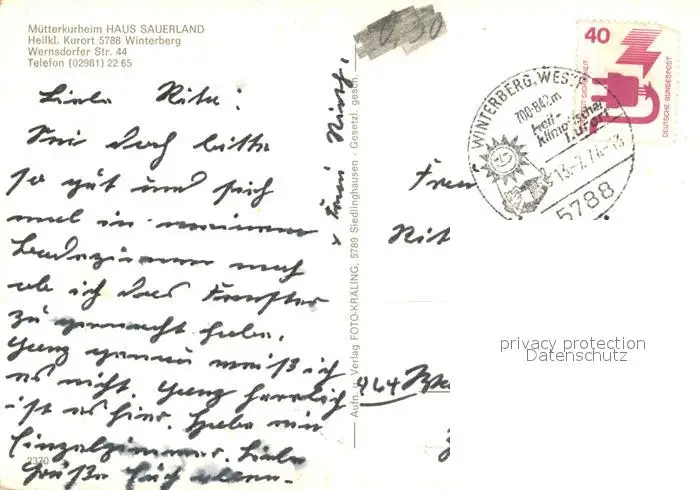 Mütterkurheim HAUS SAUERLAND
Heilkl. Kurort 5788 Winterberg
Wernsdorfer Str. 44
Telefon (02981) 22 65
Liebe Rita!
Sei doch bitte
so gut und sieh
mal in meinem
Badezimmer nach
ob ich das Fenster
zu gemacht habe.
Ganz genau weiß ich
es nicht. Ganz herrlich
ist es hier. Habe ein
Einzelzimmer. Liebe
Grüße Euch allen.
2370
Aufn. u. Verlag FOTO-KRALING, 5789 Siedlinghausen - Gesetzl. gesch.
40
DEUTSCHE BUNDESPOST
WINTERBERG, WESTF
700-842m
Heil-
klimatischer
Kurort
13.-7.74-13
5788
Frau
Rita
464
privacy protection
Datenschutz